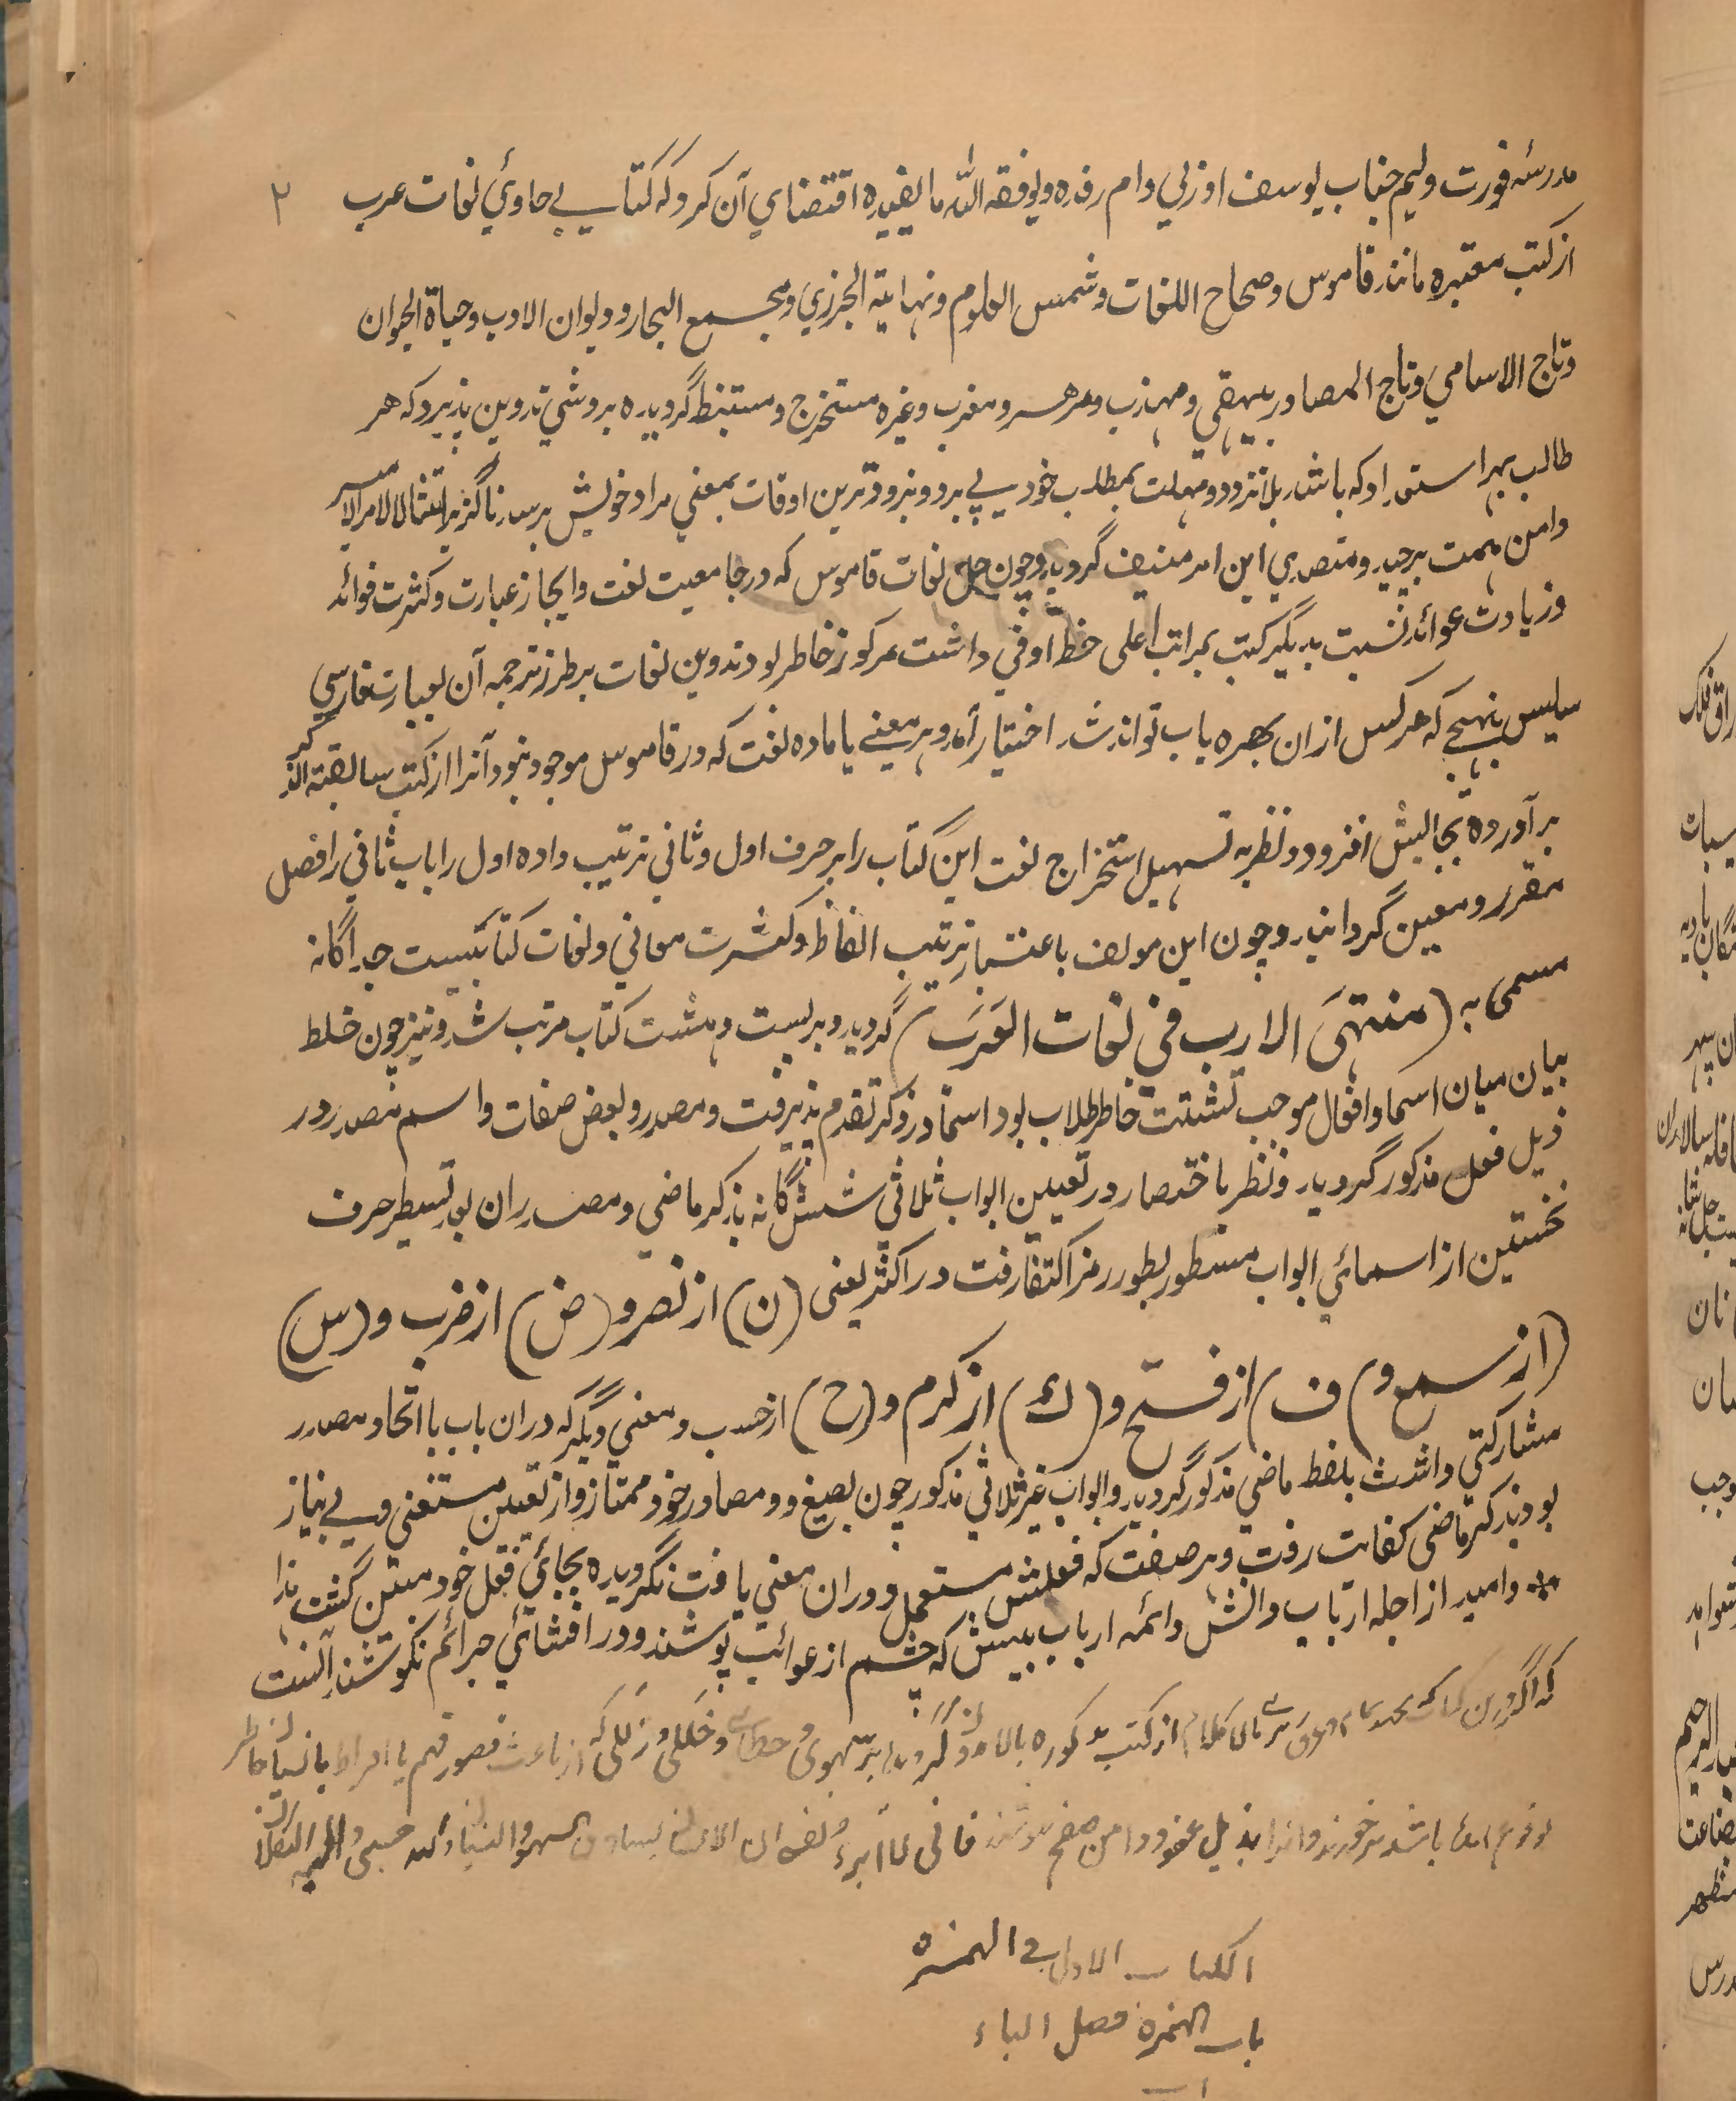 مدرسۀ فورت ولیم جناب یوسف اوزلي دام رفده ویوفقه الله ما یفیده اقتضاي آن کرد که کتابي حاوئ لغات عرب ۲
از کتب معتبره مانند قاموس و صحاح اللغات و شمس العلوم و نهایة الجزري و مجمع البحار و دیوان الادب و حیاة الحیوان
و تاج الاسامي و تاج المصادر بیهقي و مهذب و مزهر و مغرب و غیره مستخرج و مستنبط گردیده بروشي تدوین پذیرد که هر
طالب بهر استعداد که باشد بلا تردد و مهلت بمطلب خود پي برد و بزودترین اوقات بمعني مراد خویش برسد ناگزیر امتثالا لامرالامیر
دامن همت برچید و متصدي این امر منیف گردید و چون حل لغات قاموس که در جامعیت لغت و ایجاز عبارت و کثرت فوائد
و زیادت عوائد نسبت بدیگر کتب بمراتب اعلی حظ اوفي داشت مرکوز خاطر بود تدوین لغات بر طرز ترجمه آن بعبارت فارسي
سلیس بنهجي که هرکس ازان بهره یاب تواند شد اختیار آمد و هر معني یا ماده لغت که در قاموس موجود نبود آنرا از کتب سابقة الذکر
برآورده بجایش افزود و نظر به تسهیل استخراج لغت این کتاب را بر حرف اول و ثاني ترتیب داده اول را باب ثاني را فصل
مقرر و معین گردانید و چون این مولف باعتبار ترتیب الفاظ و کثرت معاني و لغات کتابیست جداگانه
مسمی به (منتهَی الارب في لغات العَرَب) گردید و بر بیست و هشت کتاب مرتب شد و نیز چون خلط
بیان میان اسما و افعال موجب تشتت خاطر طلاب بود اسما در ذکر تقدم پذیرفت و مصدر و بعض صفات و اسم مصدر در
ذیل فعل مذکور گردید و نظر باختصار در تعیین ابواب ثلاثي ششگانه بذکر ماضي و مصدر ان بتسطیر حرف
نخستین از اسمائي ابواب مسطور بطور رمز اکتفا رفت در اکثر یعنی (ن) از نصر و (ض) از ضرب و (س)
(از سمع و) ف) از فتح و (ك) از کرم و (ح) از حسب و معني دیگر که دران باب با اتحاد مصدر
مشارکتي داشت بلفظ ماضي مذکور گردید و ابواب غیر ثلاثي مذکور چون بصیغ و مصادر خود ممتاز و از تعین مستغنی و بي نیاز
بود بذکر ماضی کفایت رفت و هر صفت که فعلش مستعمل و دران معني یافت نگردیده بجائي فعل خود مبین گشت هذا
و امید از اجله ارباب دانش و ائمه ارباب بینش که چشم از عوائب پوشند و در افشائي جرائم نکوشند آنست
که اگر درین کتاب که از کتب مذکوره بالا گردیده بر سهوی و خطائي و خللی و زللی که از باعث قصور فهم یا افراط یا نسیان خاطر
بوقوع آمده باشد برخورند و انرا بذیل عفو و دامن صفح بپوشند فانی لا ابرء نفسی ان الانسان السهو والنسیان حسبی
الکتاب الاول في الهمزه
باب الهمزه فصل الباء
اب